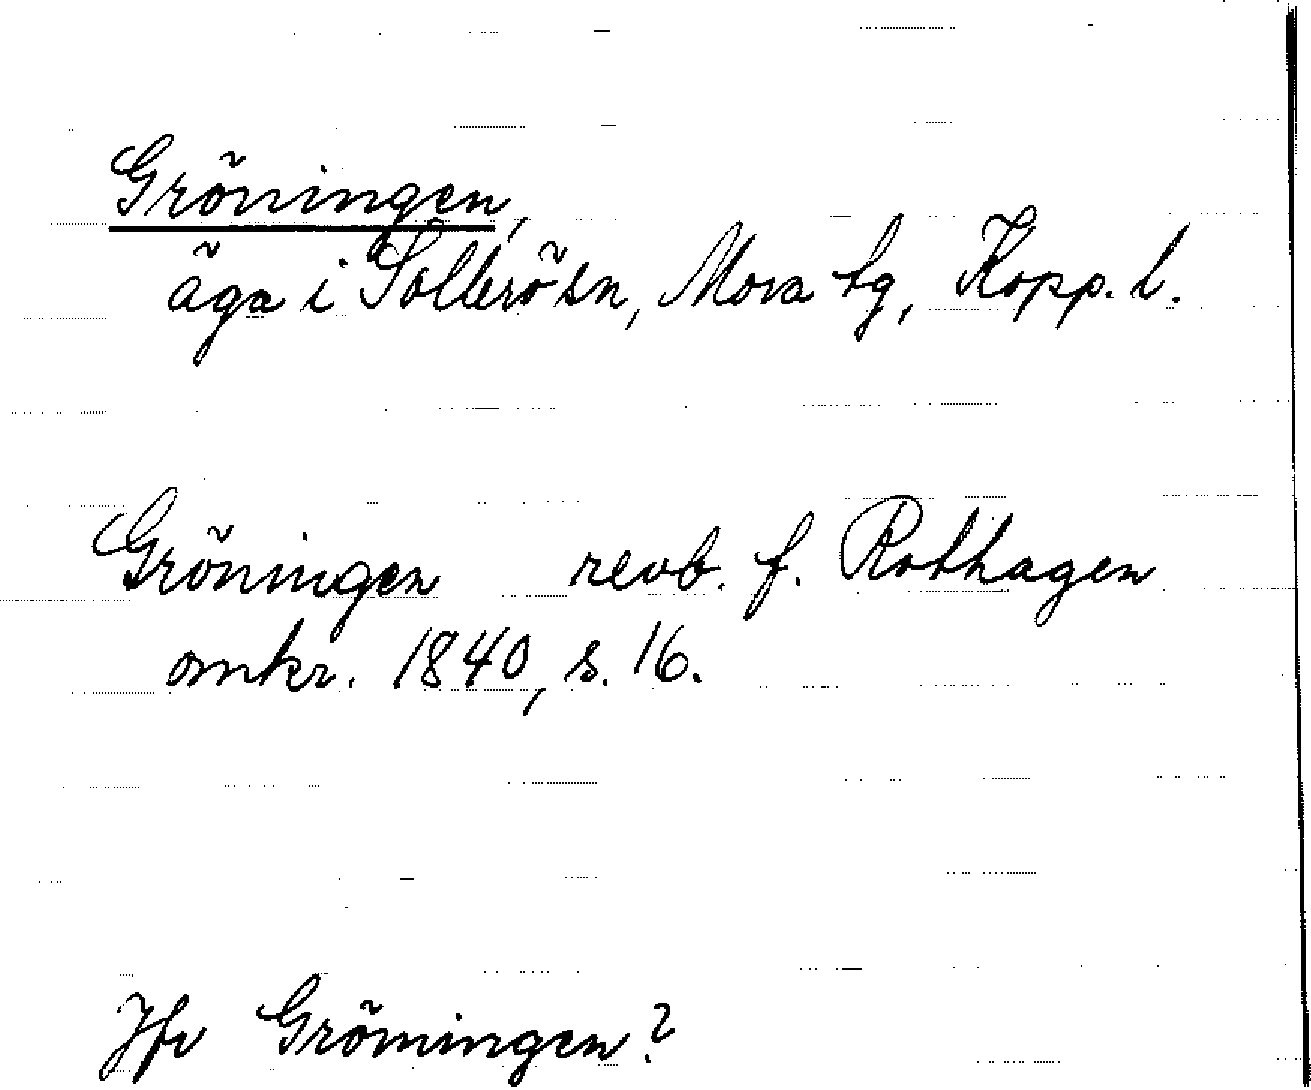 Gröningen,
äga i Sollerön sn, Mora tg, Kopp. l.
Gröningen revb. f. Rothagen
omkr. 1840, s. 16.
Jfr Grömingen?